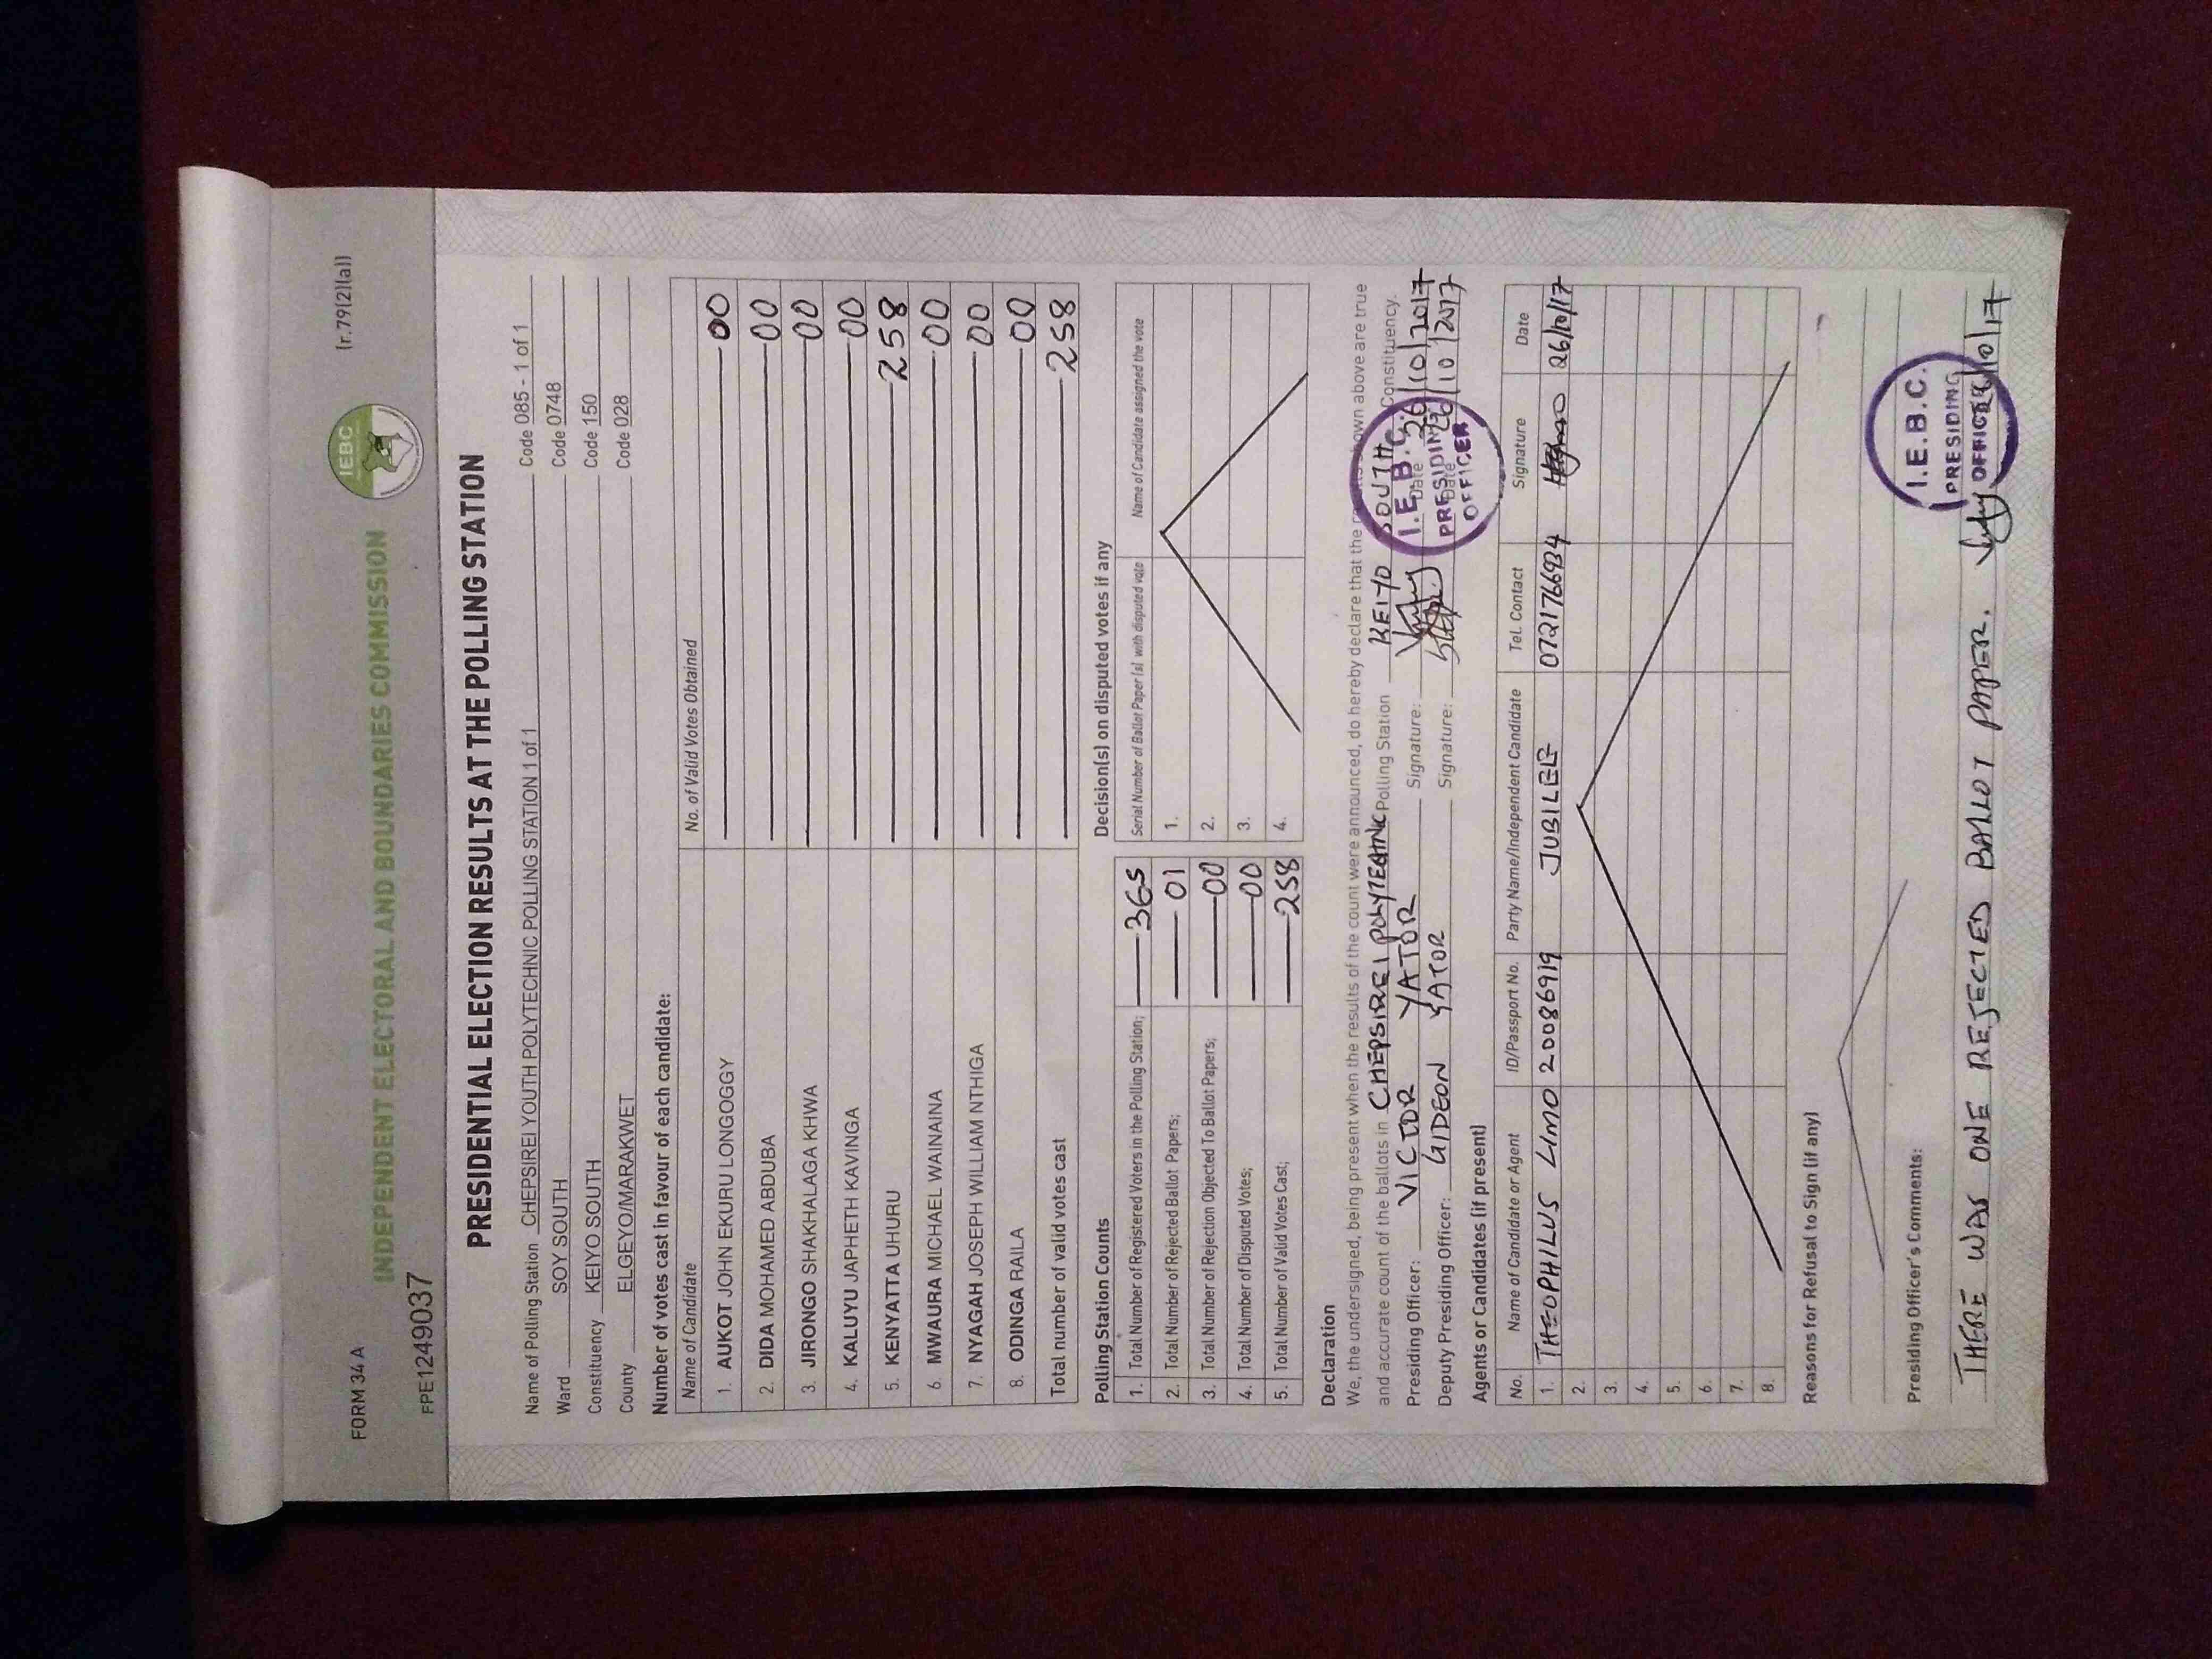 FORM 34 A
(r.79(2)(a))
IEBC
INDEPENDENT ELECTORAL AND BOUNDARIES COMMISSION
FPE1249037
PRESIDENTIAL ELECTION RESULTS AT THE POLLING STATION
Name of Polling Station CHEPSIREI YOUTH POLYTECHNIC POLLING STATION 1 of 1 Code 085 - 1 of 1
Ward SOY SOUTH Code 0748
Constituency KEIYO SOUTH Code 150
County ELGEYO/MARAKWET Code 028
Number of votes cast in favour of each candidate:
Name of Candidate No. of Valid Votes Obtained
1. AUKOT JOHN EKURU LONGOGGY 00
2. DIDA MOHAMED ABDUBA 00
3. JIRONGO SHAKHALAGA KHWA 00
4. KALUYU JAPHETH KAVINGA 00
5. KENYATTA UHURU 258
6. MWAURA MICHAEL WAINAINA 00
7. NYAGAH JOSEPH WILLIAM NTHIGA 00
8. ODINGA RAILA 00
Total number of valid votes cast 258
Polling Station Counts
1. Total Number of Registered Voters in the Polling Station; 365
2. Total Number of Rejected Ballot Papers; 01
3. Total Number of Rejection Objected To Ballot Papers; 00
4. Total Number of Disputed Votes; 00
5. Total Number of Valid Votes Cast; 258
Decision(s) on disputed votes if any
Serial Number of Ballot Paper (s) with disputed vote Name of Candidate assigned the vote
1.
2.
3.
4.
Declaration
We, the undersigned, being present when the results of the count were announced, do hereby declare that the results shown above are true
and accurate count of the ballots in CHEPSIREI POLYTECHNIC Polling Station KEIYO SOUTH Constituency.
Presiding Officer: VICTOR YATOR Signature: Date 26/10/2017
Deputy Presiding Officer: GIDEON YATOR Signature: Date 26/10/2017
I.E.B.C.
PRESIDING
OFFICER
Agents or Candidates (if present)
No. Name of Candidate or Agent ID/Passport No. Party Name/Independent Candidate Tel. Contact Signature Date
1. THEOPHILUS LIMO 20086919 JUBILEE 0721766934 26/10/17
2.
3.
4.
5.
6.
7.
8.
Reasons for Refusal to Sign (if any)
Presiding Officer's Comments:
THERE WAS ONE REJECTED BALLOT PAPER.
I.E.B.C.
PRESIDING
OFFICER